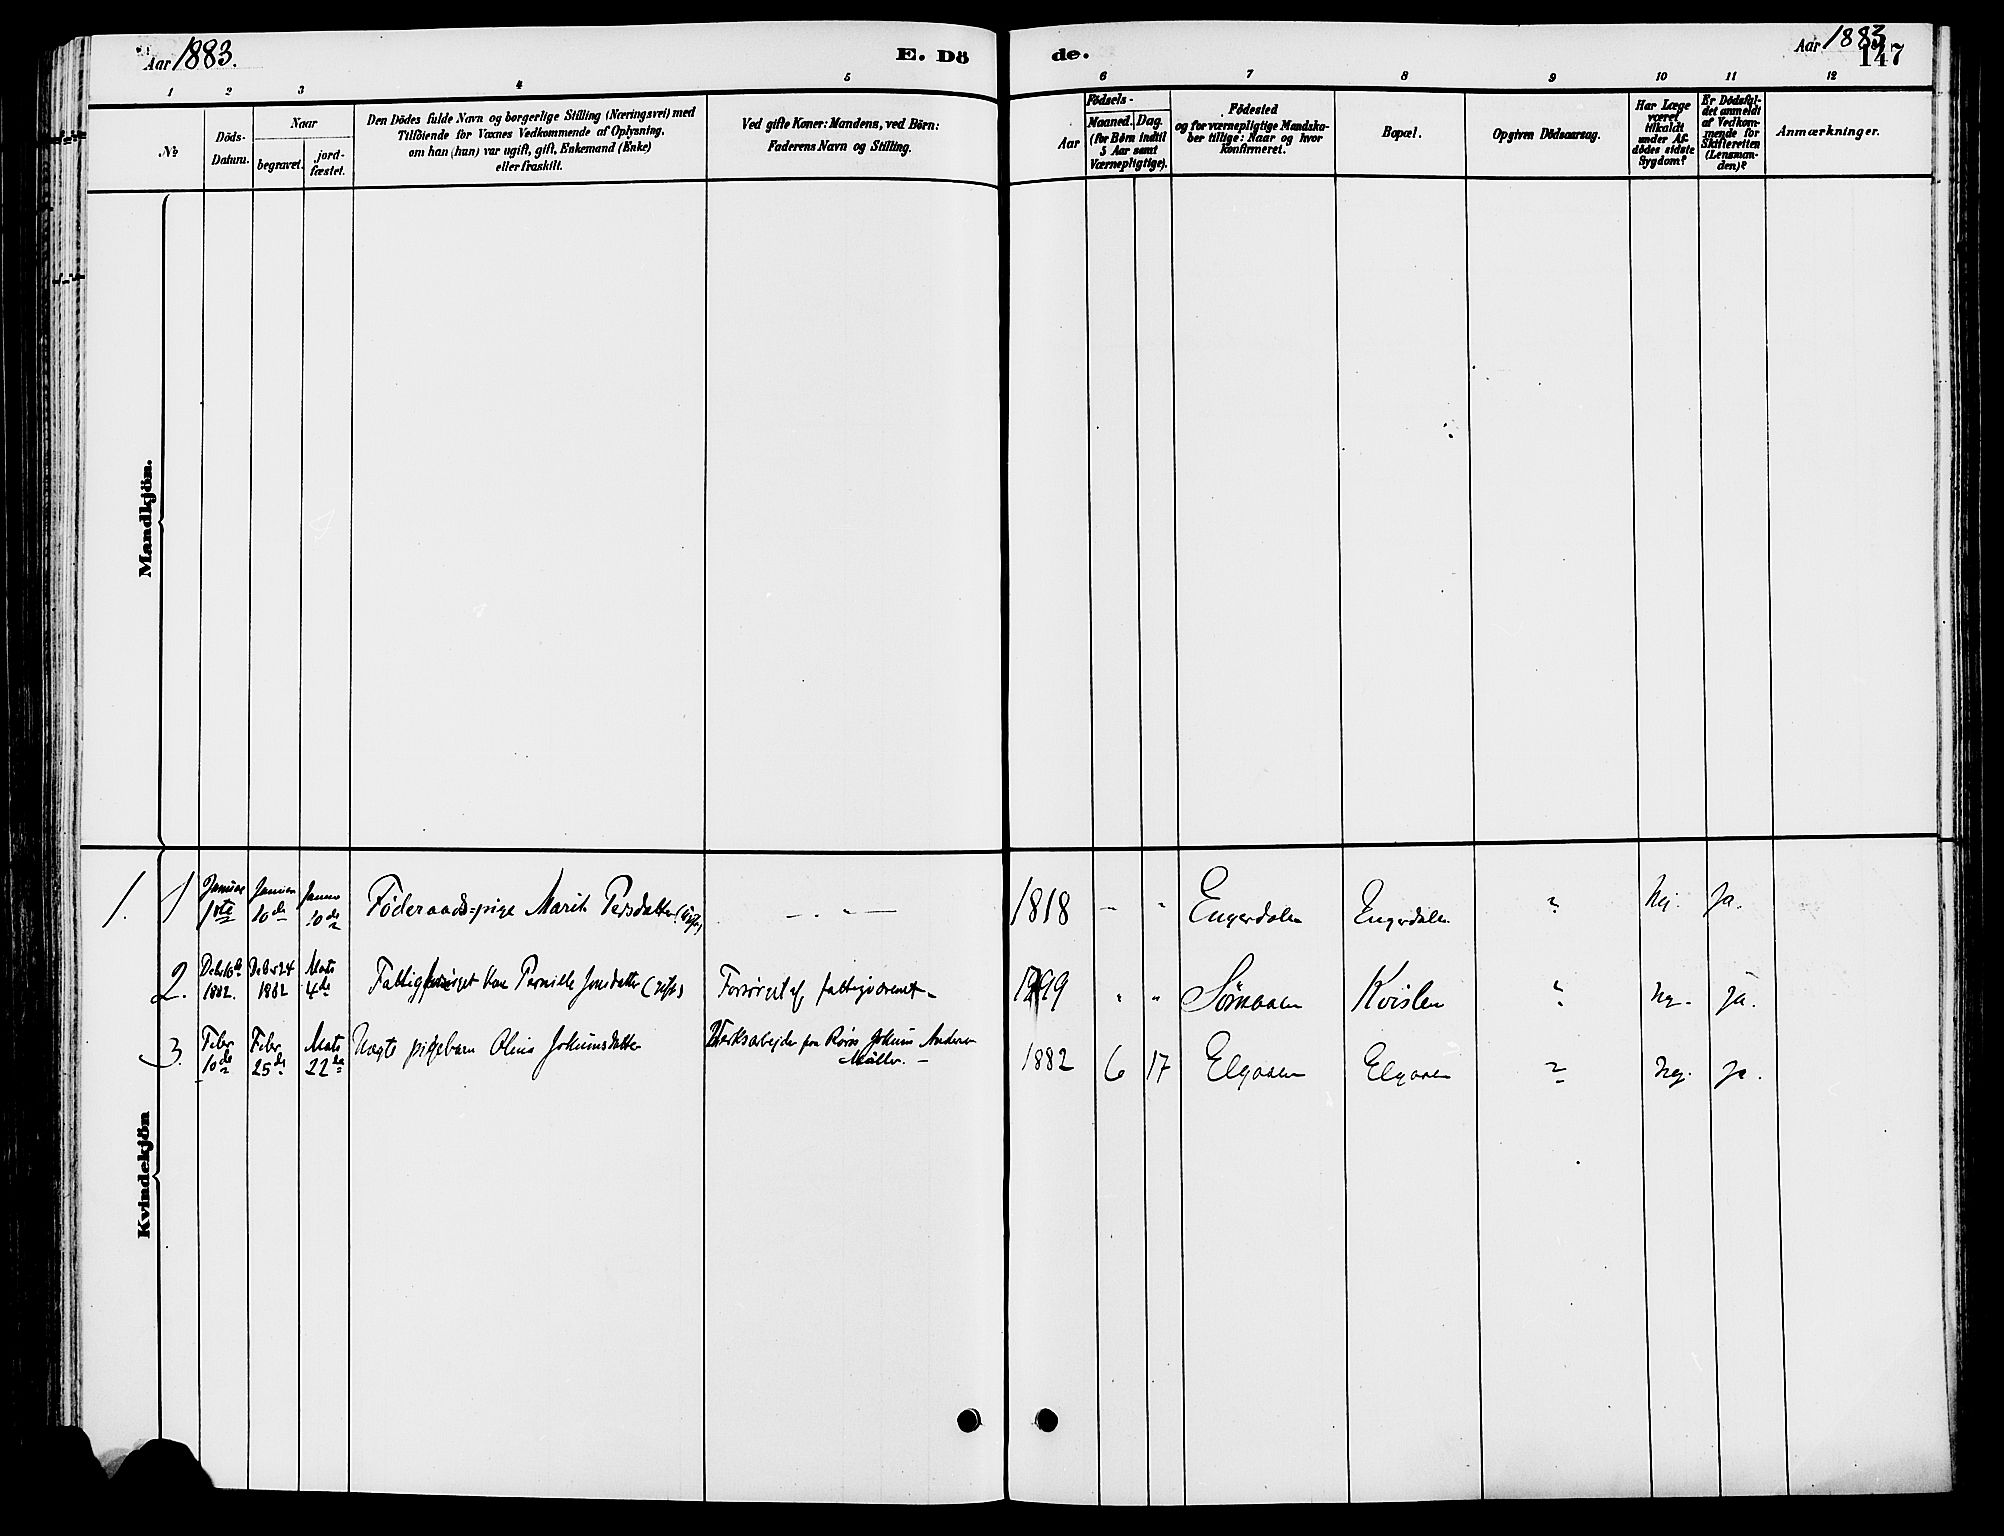 Aar 1883.
E. Dö
de.
Aar 1883
147
1 2 3 4 5 6 7 8 9 10 11 12
No
Döds-
Datum.
Naar
begravet.
jord-
fæstet.
Den Dödes fulde Navn og borgerlige Stilling (Næringsvei) med
Tilföiende for Voxnes Vedkommende af Oplysning,
om han (hun) var ugift, gift, Enkemand (Enke)
eller fraskilt.
Ved gifte Koner: Mandens, ved Börn:
Faderens Navn og Stilling.
Födsels-
Aar
Maaned. Dag.
(for Børn indtil
5 Aar samt
Værnepligtige).
Födested
og for værnepligtige Mandska-
ber tillige: Naar og hvor
konfirmeret.
Bopæl.
Opgiven Dödsaarsag.
Har Læge
været
tilkaldt
under Af-
dödes sidste
Sygdom?
Er Dödsfal-
det anmeldt
af Vedkom-
mende for
Skifteretten
(Lensman-
den)?
Anmærkninger.
Mandkjön.
Kvindekjön
1. 1 Januar 1ste Januar 10de Januar 10de Föderaads=pige Marit Persdatter — „ — 1818 – „ Engerdalen Engerdalen ? Nej. Ja.
2. 1882. Decbr 24 1882 Mats 4de Pernille Jonsdatter Forsørget af fattigvæsenet – 1799 „ „ Sømaaen Kvislen ? Nej. Ja.
3. Febr 10de Febr 25de Mats 22de pigebarn Oline Jokumsdatter Verksarbejder fra Røros Jokum Andersen
Müller. – 1882 6 17 Elgaaen Elgaaen ? Nej. Ja.